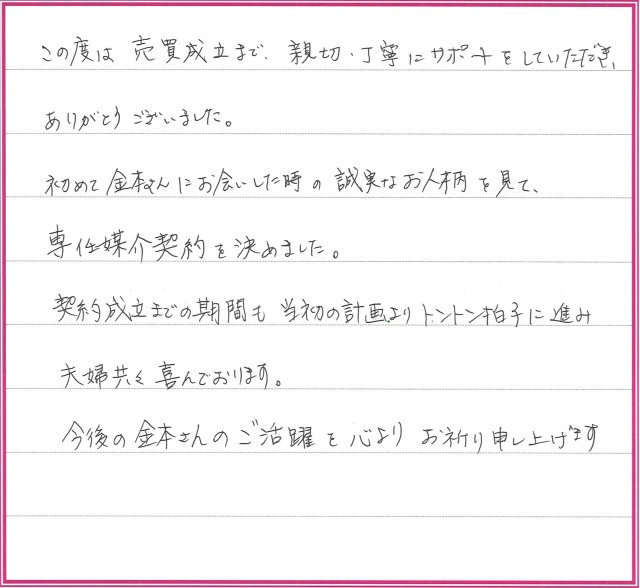 この度は 売買成立まで、親切・丁寧にサポートをしていただき、
ありがとうございました。
初めて金本さんにお会いした時の誠実なお人柄を見て、
専任媒介契約を決めました。
契約成立までの期間も当初の計画よりトントン拍子に進み
夫婦共々喜んでおります。
今後の金本さんのご活躍を心よりお祈り申し上げます